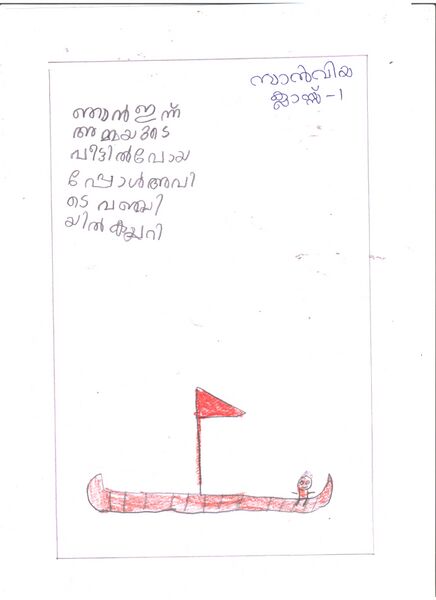 സാൻവിയ
ക്ലാസ്സ് -1
ഞാൻ ഇന്ന്
അമ്മയുടെ
വീട്ടിൽ പോയ
പ്പോൾ അവി
ടെ വഞ്ചി
യിൽ കയറി